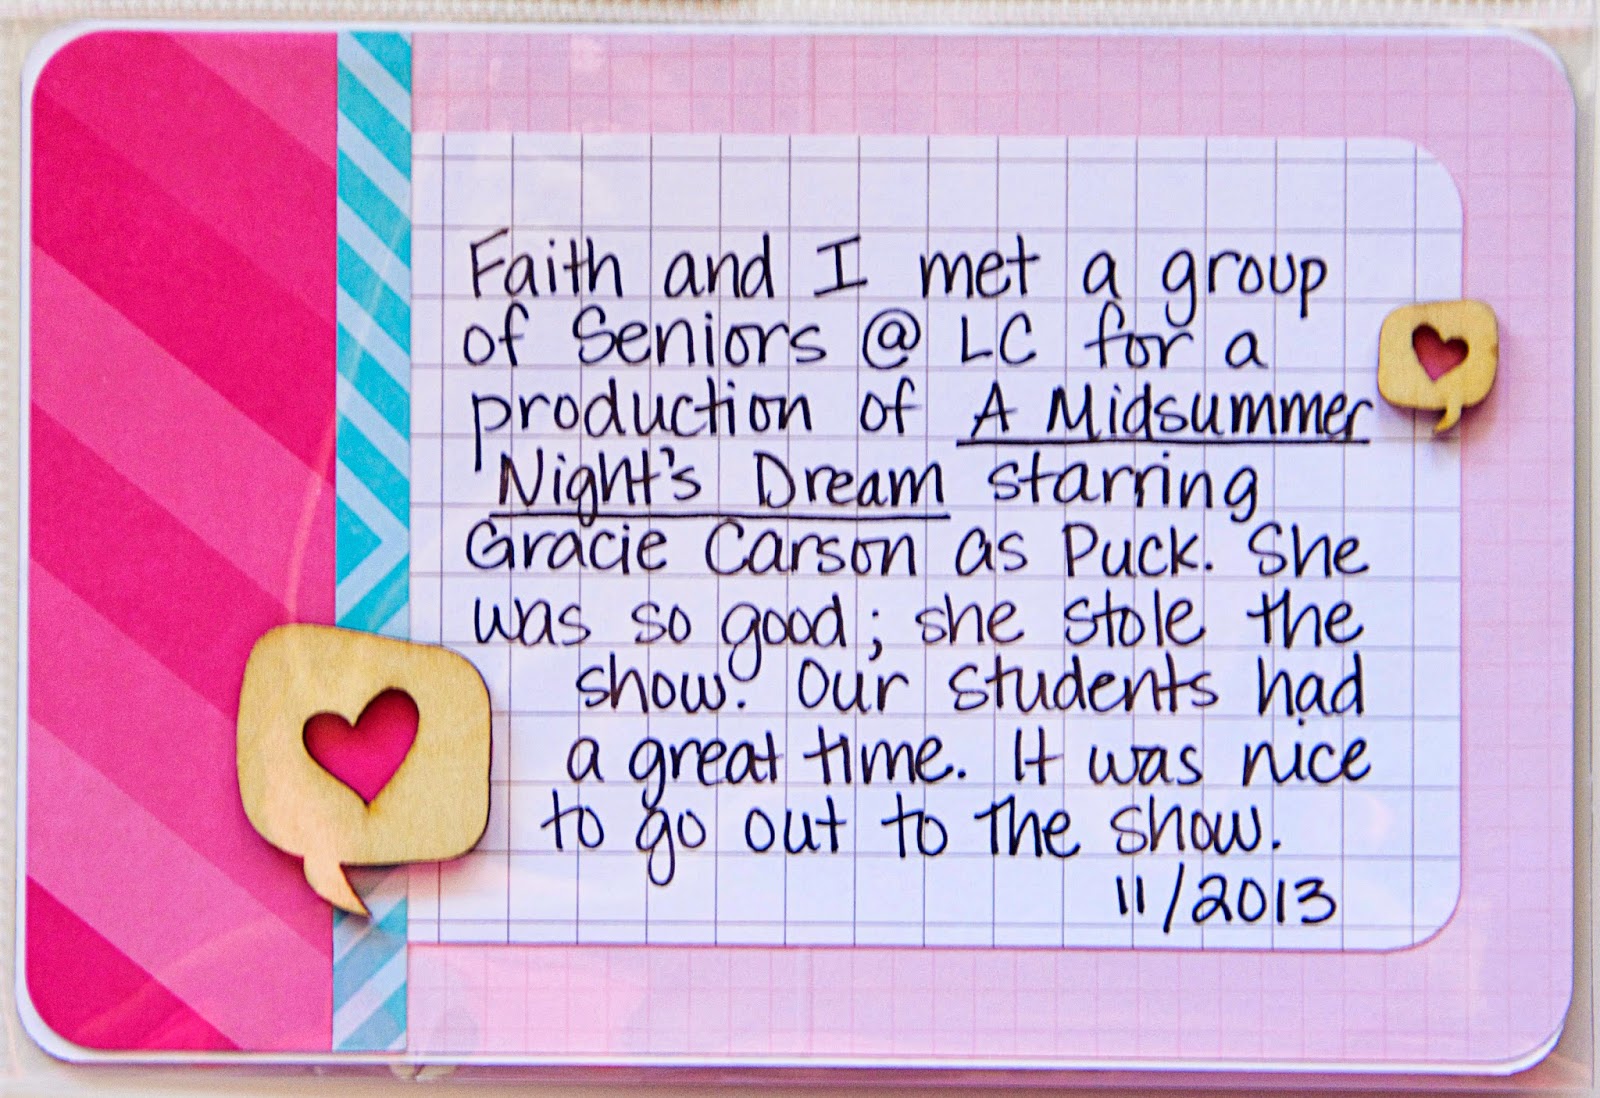 Faith and I met a group
of Seniors @ LC for a
production of A Midsummer
Night's Dream starring
Gracie Carson as Puck. She
was so good; she stole the
show. Our students had
a great time. It was nice
to go out to the show.
11/2013